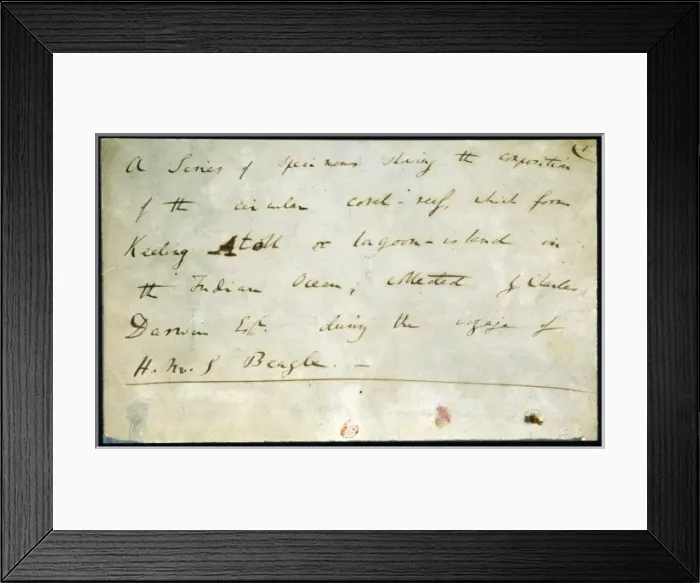 A Series of specimens showing the composition
of the circular coral-reef, which form
Keeling Atoll or lagoon-island in
the Indian Ocean; collected by Charles
Darwin Esq. during the voyage of
H.M.S Beagle. —